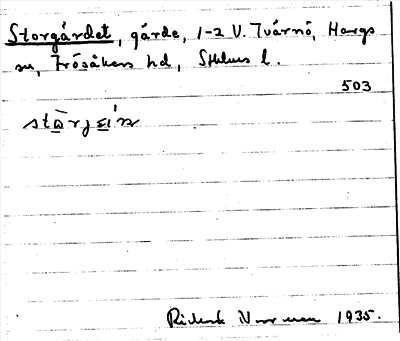 Storgärdet, gärde, 1-2 V. Tvärnö, Hargs
sn, Frösåkers hd, Sthlms l.
503
Rickard Norrman 1935.